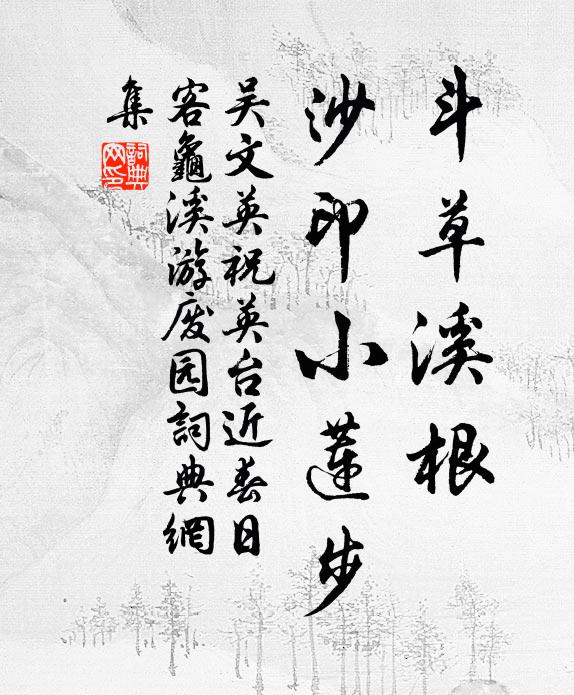 斗草溪根
沙印小莲步
吴文英祝英台近春日
客龜溪游废园詞典網
集
詞典
网印